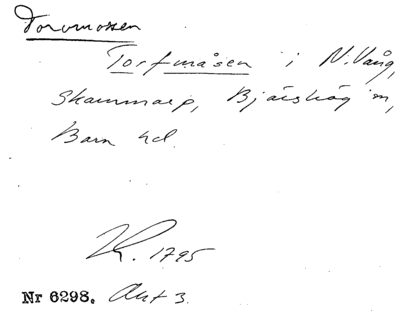 Torvmossen
Torfmåsen i N. Vång,
Skammarp, Bjärshög m,
Bara hd.
LK. 1795
Nr 6298. Akt 3.